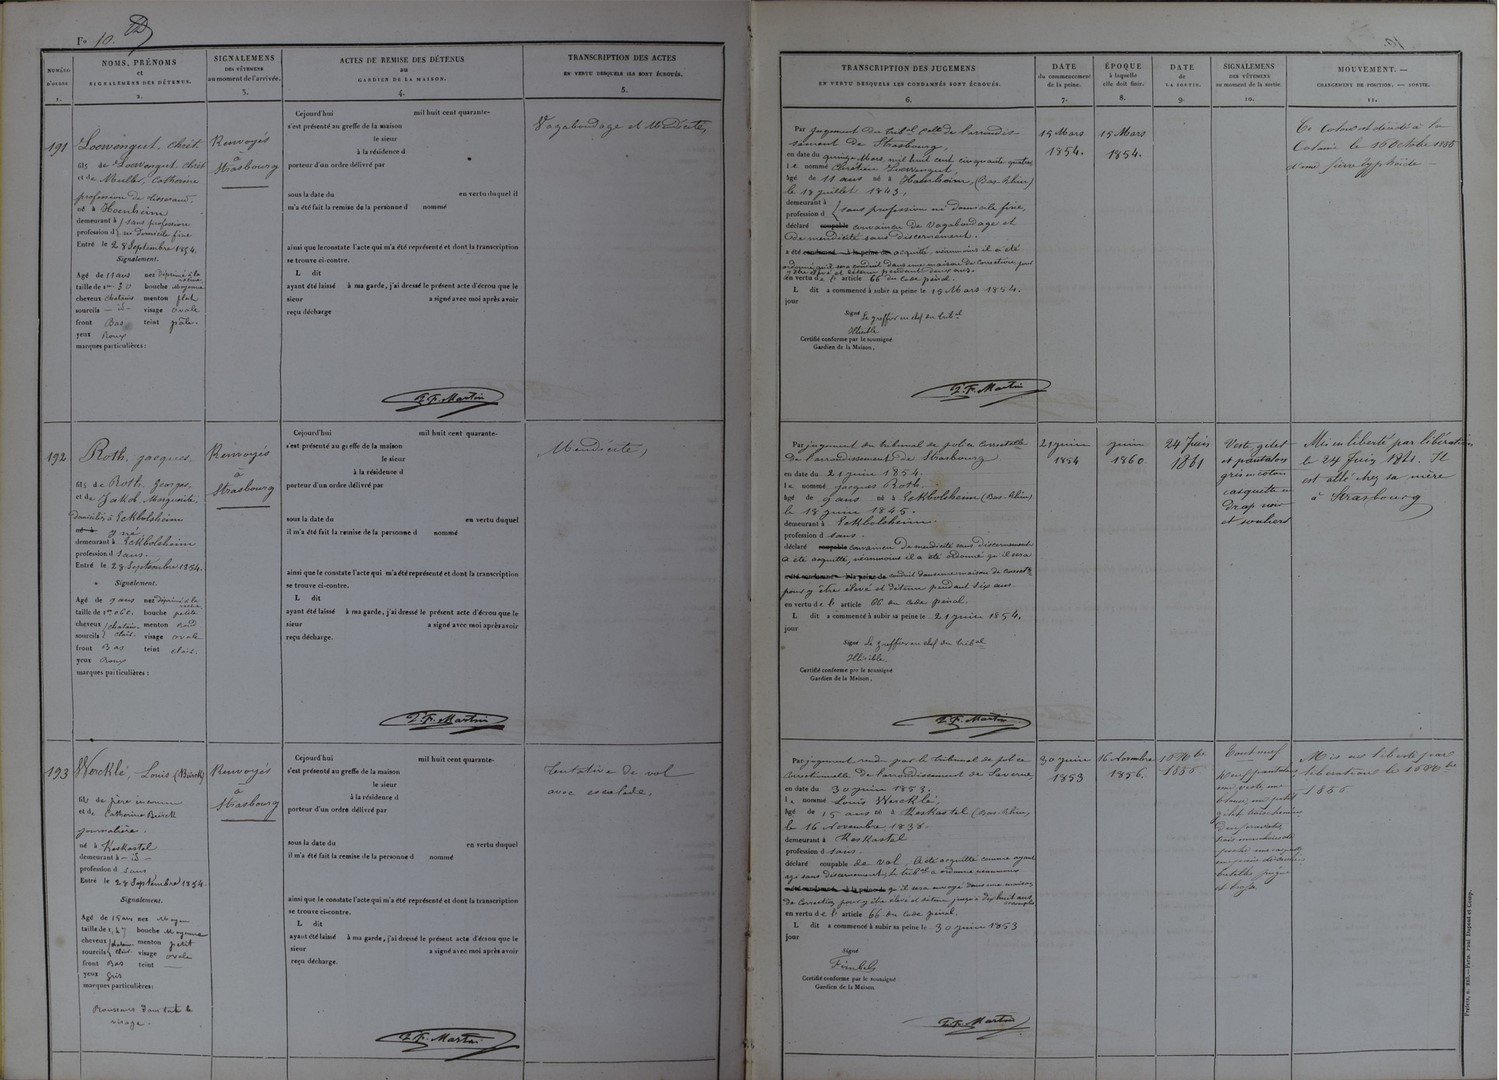 Fo 10.
NUMÉRO D'ORDRE
1.
NOMS, PRÉNOMS
et
SIGNALEMENS DES DÉTENUS.
2.
SIGNALEMENS
DES VÊTEMENS
au moment de l'arrivée.
3.
ACTES DE REMISE DES DÉTENUS
au
GARDIEN DE LA MAISON.
4.
TRANSCRIPTION DES ACTES
EN VERTU DESQUELS ILS SONT ÉCROUÉS.
5.
TRANSCRIPTION DES JUGEMENS
EN VERTU DESQUELS LES CONDAMNÉS SONT ÉCROUÉS.
6.
DATE
du commencement
de la peine.
7.
ÉPOQUE
à laquelle
elle doit finir.
8.
DATE
de
LA SORTIE.
9.
SIGNALEMENS
DES VÊTEMENS
au moment de la sortie.
10.
MOUVEMENT. —
CHANGEMENT DE POSITION. — SORTIE.
11.
191
Loewenguet, Chrét
fils de Loewenguet Chrét
et de Muller, Catherine
profession de tisserand.
né à Hoenheim
demeurant à } sans profession
profession d } ni Domicile fixe
Entré le 28 Septembre 1854.
Signalement.
Agé de 11 ans nez déprimé à la racine
taille de 1m 30 bouche moyenne
cheveux chatains menton plat
sourcils — id — visage ovale
front Bas teint pâle.
yeux Roux
marques particulières :
Renvoyés
à
Strasbourg
Cejourd'hui mil huit cent quarante-
s'est présenté au greffe de la maison
le sieur
à la résidence d
porteur d'un ordre délivré par
sous la date du en vertu duquel il
m'a été fait la remise de la personne d nommé
ainsi que le constate l'acte qui m'a été représenté et dont la transcription
se trouve ci-contre.
L dit
ayant été laissé à ma garde, j'ai dressé le présent acte d'écrou que le
sieur a signé avec moi après avoir
reçu décharge
J. F. Martin
Vagabondage et Mendicité,
Par jugement du trib.l corr.l de l'arrondis-
sement de Strasbourg,
en date du quinze Mars, mil huit cent cinquante quatre,
le nommé Chrétien Loewenguet,
âgé de 11 ans né à Hoenheim, (Bas-Rhin)
le 18 juillet 1843,
demeurant à
profession d } sans profession ni domicile fixe,
déclaré coupable convaincu de Vagabondage et
de mendicité sans discernement.
a été condamné à la peine de acquitté, néanmoins il a été
ordonné qu'il sera conduit dans une maison de Correction pour
y être élevé et détenu pendant deux ans.
en vertu de l' article 66 du Code pénal.
L dit a commencé à subir sa peine le 15 Mars 1854.
jour
Signé Le greffier en chef du trib.al
Illisible
Certifié conforme par le soussigné
Gardien de la Maison,
J. F. Martin
15 Mars
1854.
15 Mars
1854.
Ce Colon est décédé à la
Colonie le 16 Octobre 1855
d'une fièvre typhoïde —
192
Roth, jacques.
fils de Roth, Georges,
et de Jakob Marguerite,
domiciliés à Eckbolsheim
né à y né
demeurant à Eckbolsheim
profession d Sans.
Entré le 28 Septembre 1854.
Signalement.
Agé de 9 ans nez déprimé à la racine
taille de 1m 06c. bouche petite
cheveux } chatain menton Rond
sourcils } clair. visage ovale
front Bas teint clair.
yeux Roux
marques particulières :
Renvoyés
à
Strasbourg
Cejourd'hui mil huit cent quarante-
s'est présenté au greffe de la maison
le sieur
à la résidence d
porteur d'un ordre délivré par
sous la date du en vertu duquel
il m'a été fait la remise de la personne d nommé
ainsi que le constate l'acte qui m'a été représenté et dont la transcription
se trouve ci-contre.
L dit
ayant été laissé à ma garde, j'ai dressé le présent acte d'écrou que le
sieur a signé avec moi après avoir
reçu décharge.
J. F. Martin
Mendicité,
Par jugement du tribunal de police Correctelle
de l'arrondissement de Strasbourg
en date du 21 juin 1854.
le nommé jacques Roth.
âgé de 9 ans né à Eckbolsheim (Bas-Rhin)
le 18 juin 1845.
demeurant à Eckbolsheim.
profession d Sans.
déclaré coupable convaincu de mendicité sans discernement
a été acquitté, néanmoins il a été ordonné qu'il sera
été condamné à la peine de conduit dans une maison de Correct.n
pour y être élevé et détenu pendant six ans.
en vertu de l' article 66 du Code pénal
L dit a commencé à subir sa peine le 21 juin 1854.
jour
Signé Le greffier en chef du trib.al
Illisible.
Certifié conforme par le soussigné
Gardien de la Maison,
J. F. Martin
21 juin
1854
juin
1860
24 Juin
1861
Veste gilet
et pantalon
casquette
Drap noir
et souliers
Mis en liberté par libération
le 24 Juin 1861. Il
est allé chez sa mère
à Strasbourg
193
Wercklé, Louis (Bürck)
fils de père inconnu
et de Catherine Bürck
journalière.
né à Keskastel
demeurant à — id —
profession d Sans
Entré le 28 Septembre 1854.
Signalement.
Agé de 15 ans nez Moyen
taille de 1,47 bouche Moyenne
cheveux } chatain menton petit
sourcils } clair. visage ovale
front Bas teint —
yeux gris
marques particulières :
Rousseurs dans tout le
visage.
Renvoyés
à
Strasbourg
Cejourd'hui mil huit cent quarante-
s'est présenté au greffe de la maison
le sieur
à la résidence d
porteur d'un ordre délivré par
sous la date du en vertu duquel
il m'a été fait la remise de la personne d nommé
ainsi que le constate l'acte qui m'a été représenté et dont la transcription
se trouve ci-contre.
L dit
ayant été laissé à ma garde, j'ai dressé le présent acte d'écrou que le
sieur a signé avec moi après avoir
reçu décharge.
J. F. Martin
Tentative de vol
avec escalade,
Par jugement rend par le tribunal de police
Correctionnelle de l'arrondissement de Saverne,
en date du 30 juin 1853.
le nommé Louis Wercklé,
âgé de 15 ans né à Keskastel (Bas-Rhin,
le 16 Novembre 1838.
demeurant à Keskastel
profession d Sans.
déclaré coupable de vol, A été acquitté comme ayant
agi sans discernement, le trib.al a ordonné néanmoins
a été condamné à la peine de qu'il sera envoyé dans une maison
de Correction pour y être élevé et détenu jusqu'à dix huit ans
en vertu de l' article 66 du Code pénal.
L dit a commencé à subir sa peine le 30 juin 1853
jour
Signé
Certifié conforme par le soussigné
Gardien de la Maison
J. F. Martin
30 juin
1853
16 Novembre
1856.
Mis en liberté par
libération le
Préfets, n. 387.—Paris. Paul Dupont et Comp.